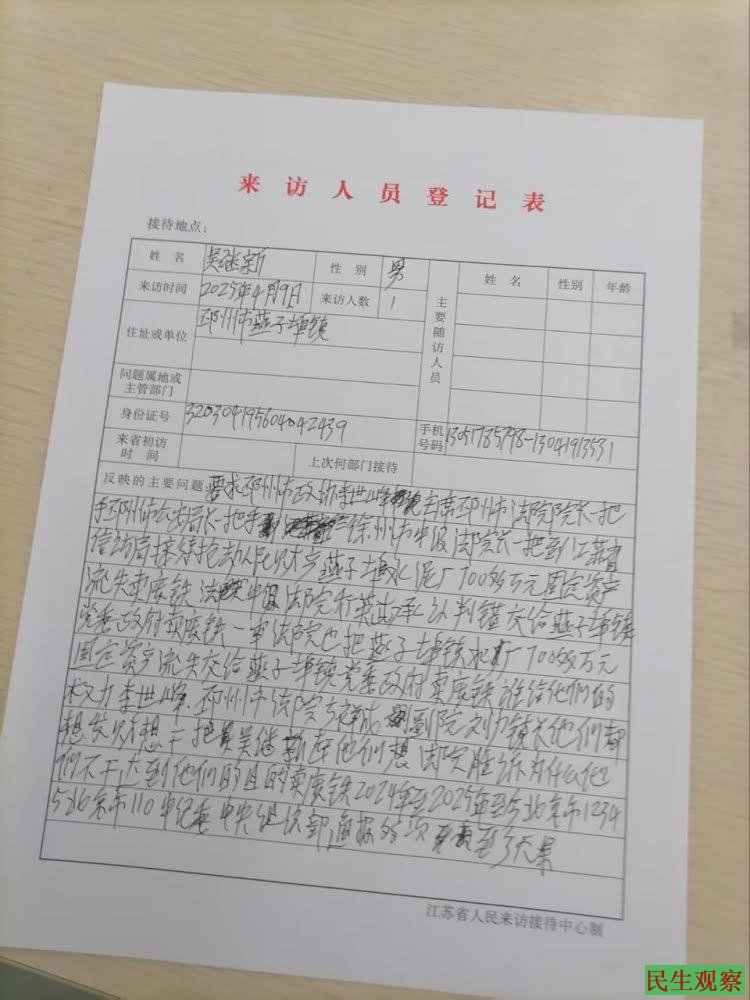 来访人员登记表
接待地点：
姓名 吴继新 性别 男 主要随访人员 姓名 性别 年龄
来访时间 2025年4月9日 来访人数 1
住址或单位 邳州市燕子埠镇
问题属地或主管部门
身份证号 320304195604042439 手机号码 13051785798-13041913531
来省初访时间 上次何部门接待
反映的主要问题 要求邳州市政协李世峰主席邳州市法院院长一把
手邳州市公安局长一把手徐州市中级法院长一把到江苏省
信访局接续抢劫人民财产燕子埠水泥厂700多万元固定资产
流失卖废铁 法院中级法院行英出承认判错交给燕子埠镇
党委政府卖废铁一审法院也把燕子埠镇水厂700多万元
固定资产流失交给燕子埠镇党委政府卖废铁谁给他们的
权力李世峰 邳州市法院 副院刘力镇长他们都
想发财想干把吴继新在他们想法院胜诉为什么他
们不干达到他们的目的卖废铁2024年至2025年至5北京市1234
5北京市110中纪委中央组织部通报 至了大果
江苏省人民来访接待中心制
民生观察